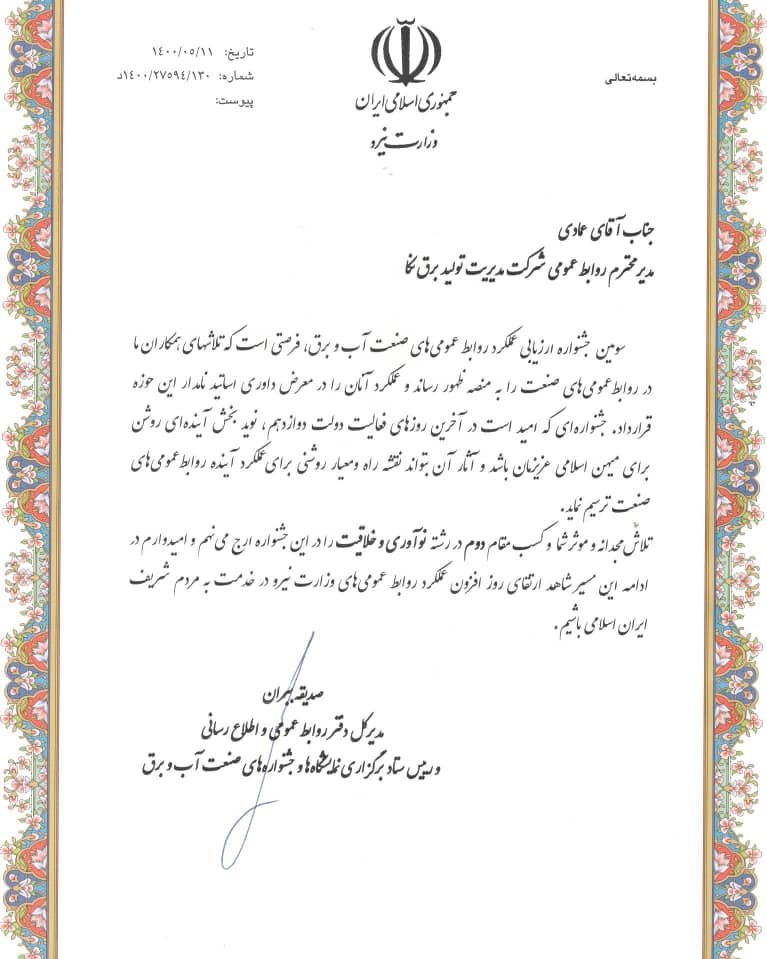 بسمه‌تعالی
جمهوری اسلامی ایران
وزارت نیرو
تاریخ: ۱۴۰۰/۰۵/۱۱
شماره: ۱۴۰۰/۲۷۵۹۴/۱۳۰د
پیوست:
جناب آقای عمادی
مدیر محترم روابط عمومی شرکت مدیریت تولید برق نکا
سومین جشنواره ارزیابی عملکرد روابط عمومی‌های صنعت آب و برق، فرصتی است که تلاشهای همکاران ما
در روابط عمومی‌های صنعت را به منصه ظهور رساند و عملکرد آنان را در معرض داوری اساتید نامدار این حوزه
قرار داد. جشنواره‌ای که امید است در آخرین روزهای فعالیت دولت دوازدهم، نوید بخش آینده‌ای روشن
برای میهن اسلامی عزیزمان باشد و آثار آن بتواند نقشه راه و معیار روشنی برای عملکرد آینده روابط عمومی‌های
صنعت ترسیم نماید.
تلاش مجدانه و موثر شما و کسب مقام دوم در رشته نوآوری و خلاقیت را در این جشنواره ارج می‌نهم و امیدوارم در
ادامه این مسیر شاهد ارتقای روز افزون عملکرد روابط عمومی‌های وزارت نیرو در خدمت به مردم شریف
ایران اسلامی باشیم.
صدیقه ببران
مدیرکل دفتر روابط عمومی و اطلاع رسانی
و رییس ستاد برگزاری نمایشگاه‌ها و جشنواره‌های صنعت آب و برق